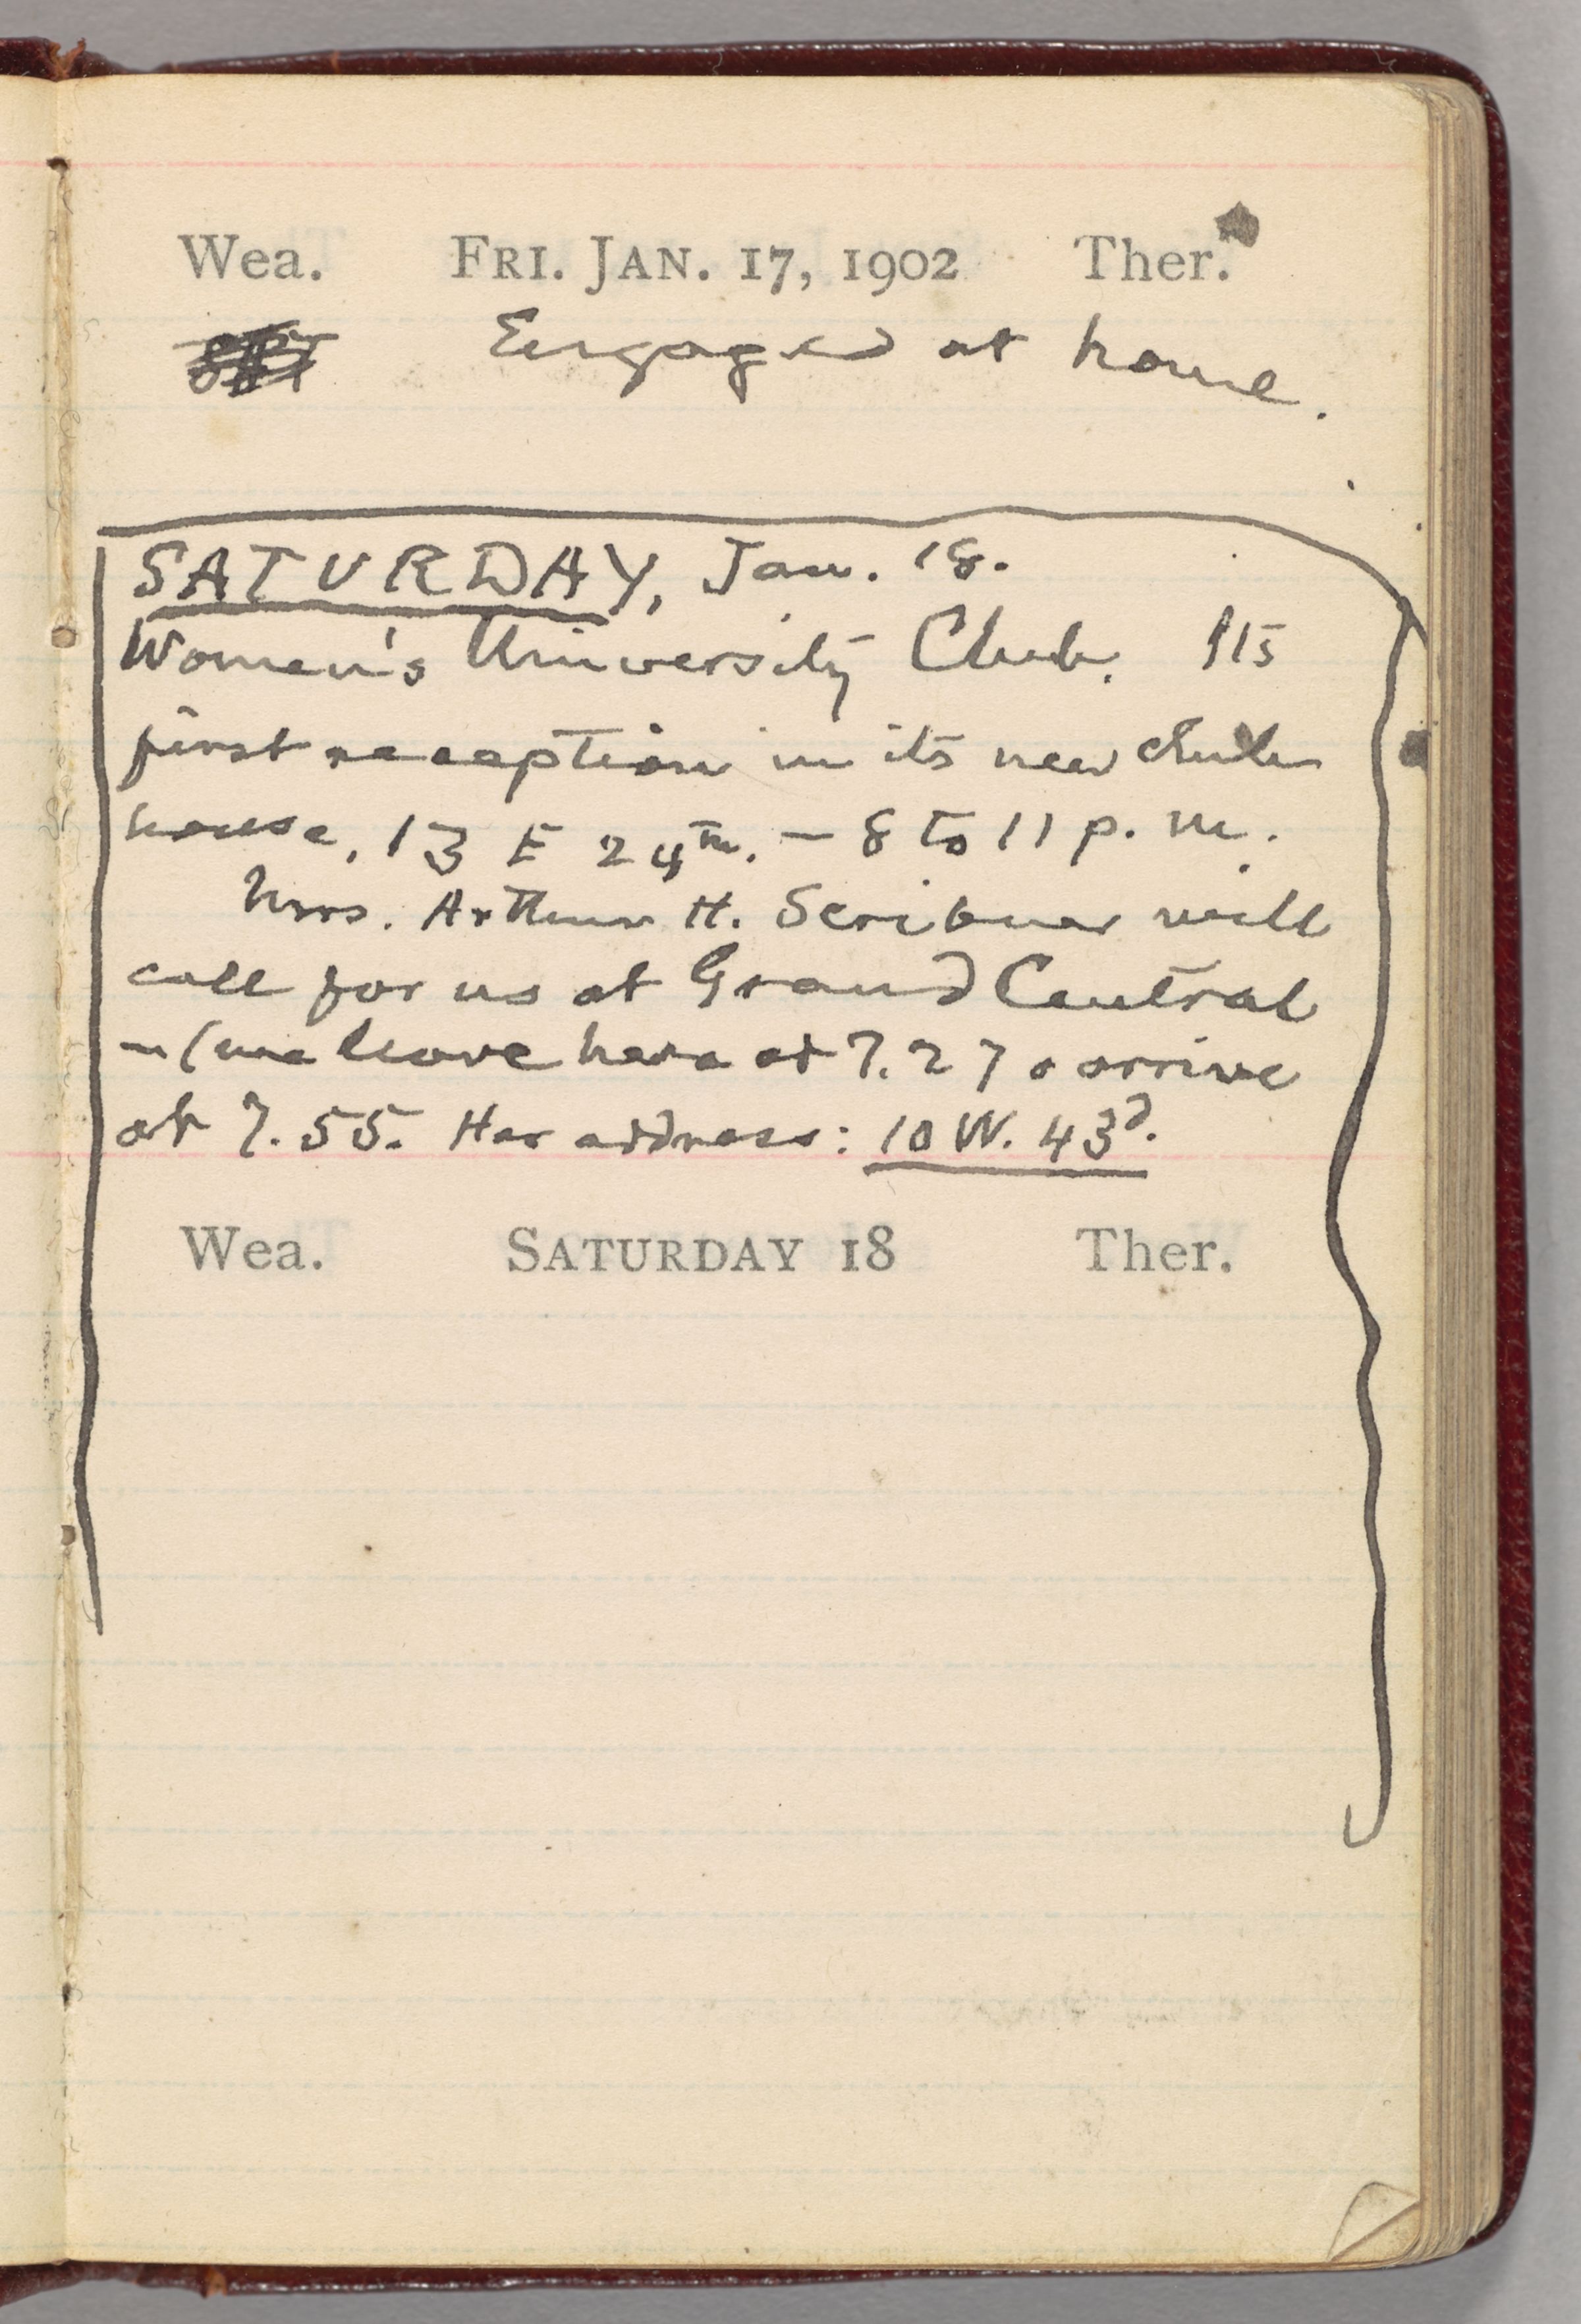 Wea. FRI. JAN. 17, 1902 Ther.
Engaged at home.
SATURDAY, Jan. 18.
Women's University Club. Its
first reception in its new club
house, 13 E 24th. — 8 to 11 p. m.
Mrs. Arthur H. Scribner will
call for us at Grand Central
— (we leave here at 7.27 & arrive
at 7.55. Her address: 10 W. 43d.
Wea. SATURDAY 18 Ther.